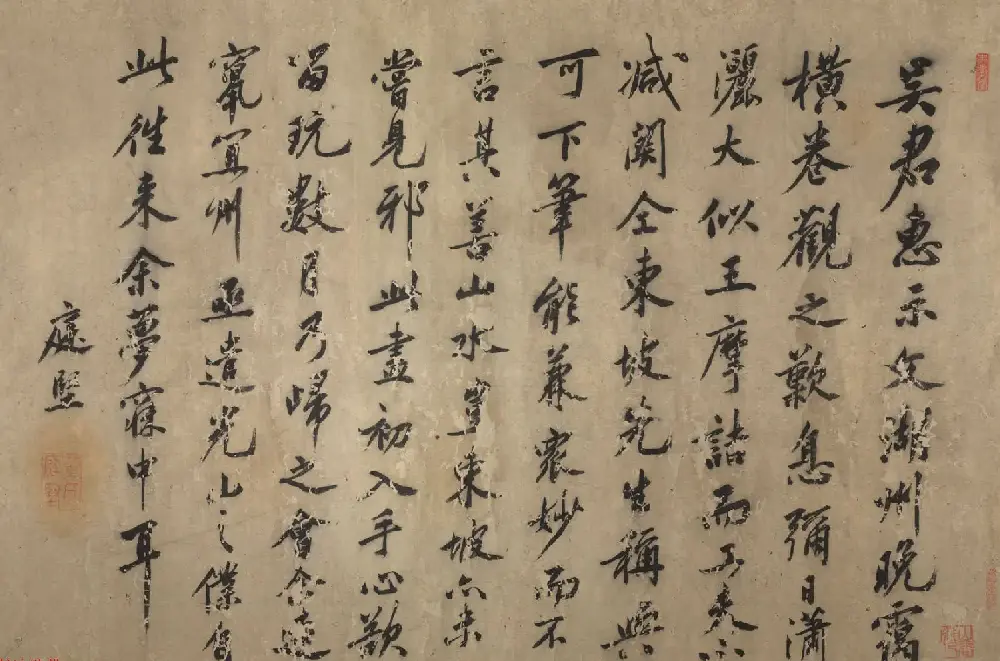 吳君惠示文湖州晚靄
橫卷觀之歎息彌日瀟
灑大似王摩詰而工夫不
減關仝東坡先生稱與
可下筆能兼衆妙而不
言其善山水豈東坡亦未
嘗見邪此畫初入手心欲
留玩數月乃歸之會余遷
竄宜州亟遣光之僕自
此往來余夢寐中耳
庭堅